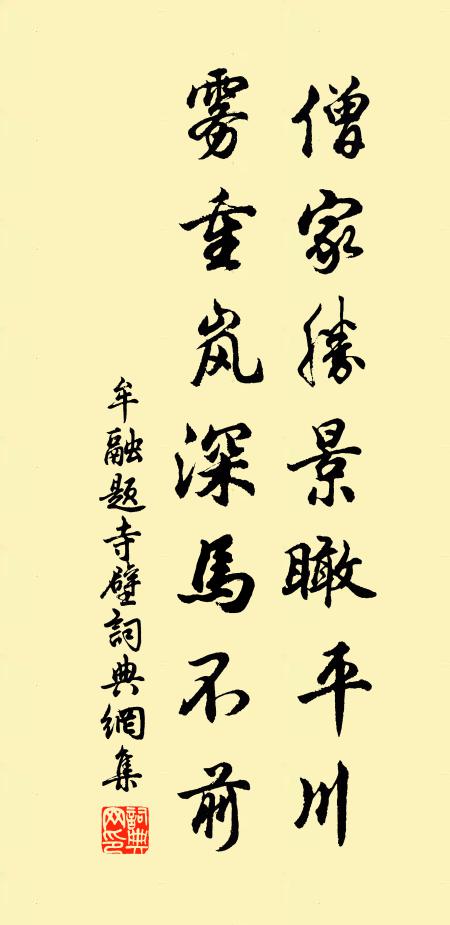 僧家勝景瞰平川
雾重岚深馬不前
牟融題寺壁詞典網集
詞典網印